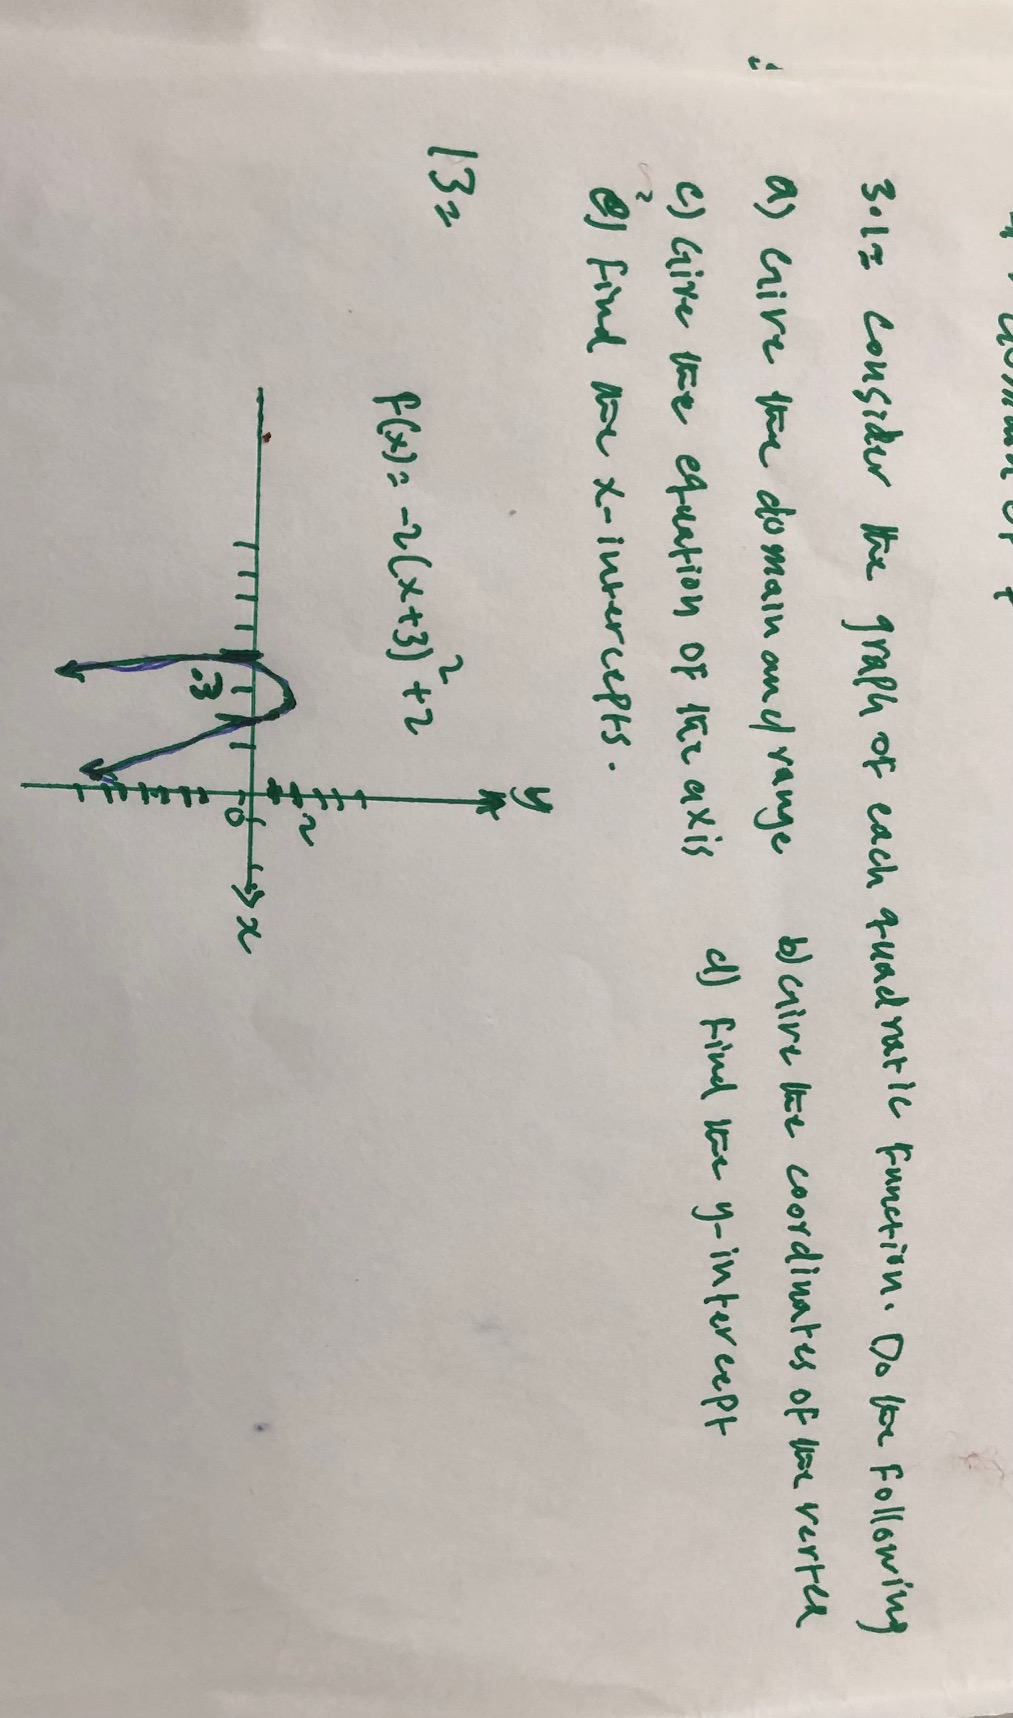 3.1= Consider the graph of each quadratic function. Do the following
a) Give the domain and range b) Give the coordinates of the vertex
c) Give the equation of the axis d) Find the y-intercept
e) Find the x-intercepts.
13=
f(x) = -2(x+3)²+2
y
2
-3
0
x